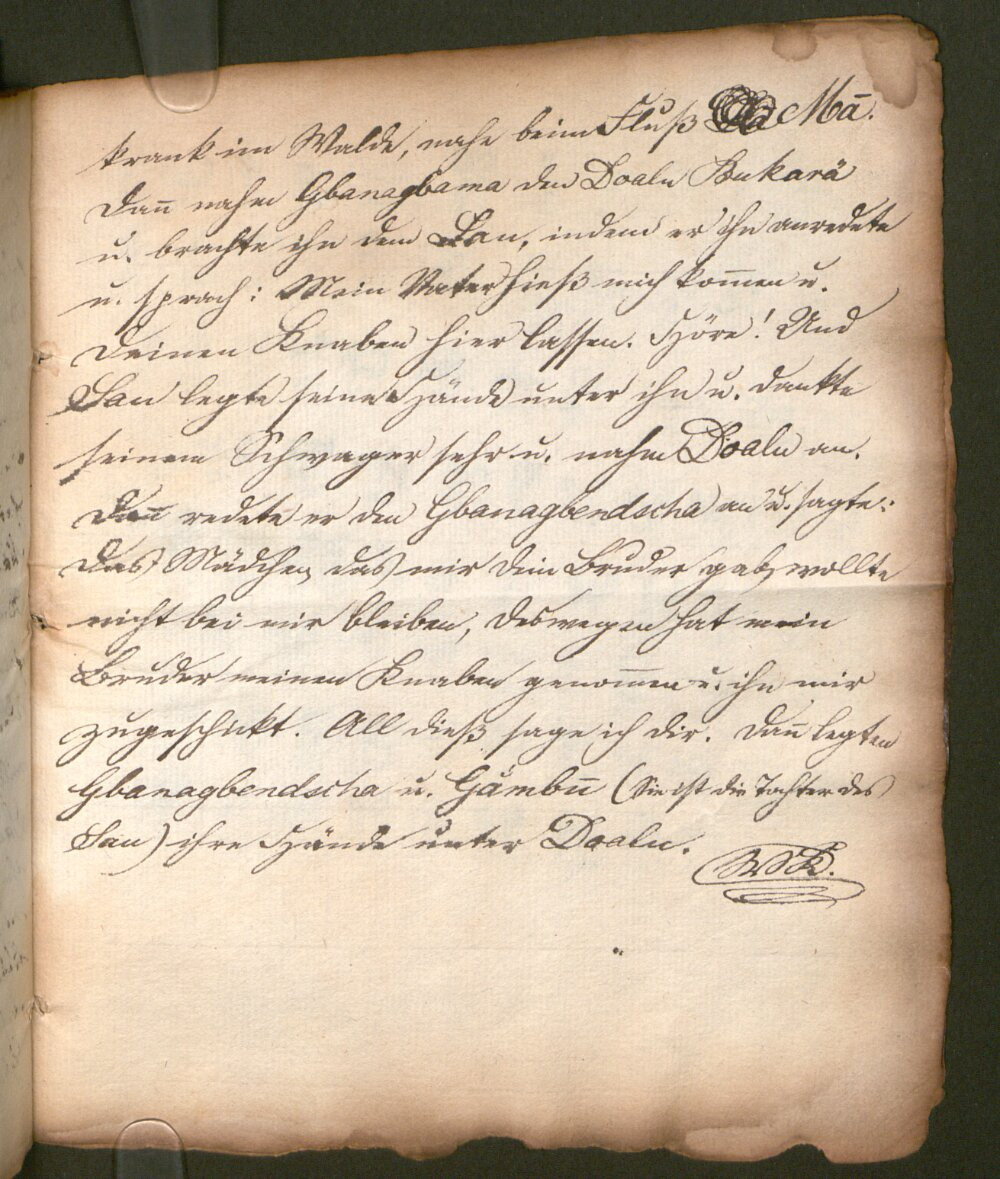 krank im Walde, nahe beim Fluß Mā.
Dan̄ nahm Gbanagbama den Doalu Bukarä
u. brachte ihn dem San, indem er ihn anredete
u. sprach: Mein Vater hieß mich kom̄en u.
Deinen Knaben hier lassen. Höre! Und
San legte seine Hände unter ihn u. dankte
seinem Schwager sehr u. nahm Doalu an.
Dan̄ redete er den Gbanagbendscha an u. sagte:
Das Mädchen, das mir dein Bruder gab, wollte
nicht bei mir bleiben, deswegen hat mein
Bruder meinen Knaben genom̄en u. ihn mir
zugeschickt. All dieß sage ich dir. Dan̄ legten
Gbanagbendscha u. Gāmbū (Sie ist die Tochter des
San) ihre Hände unter Doalu.